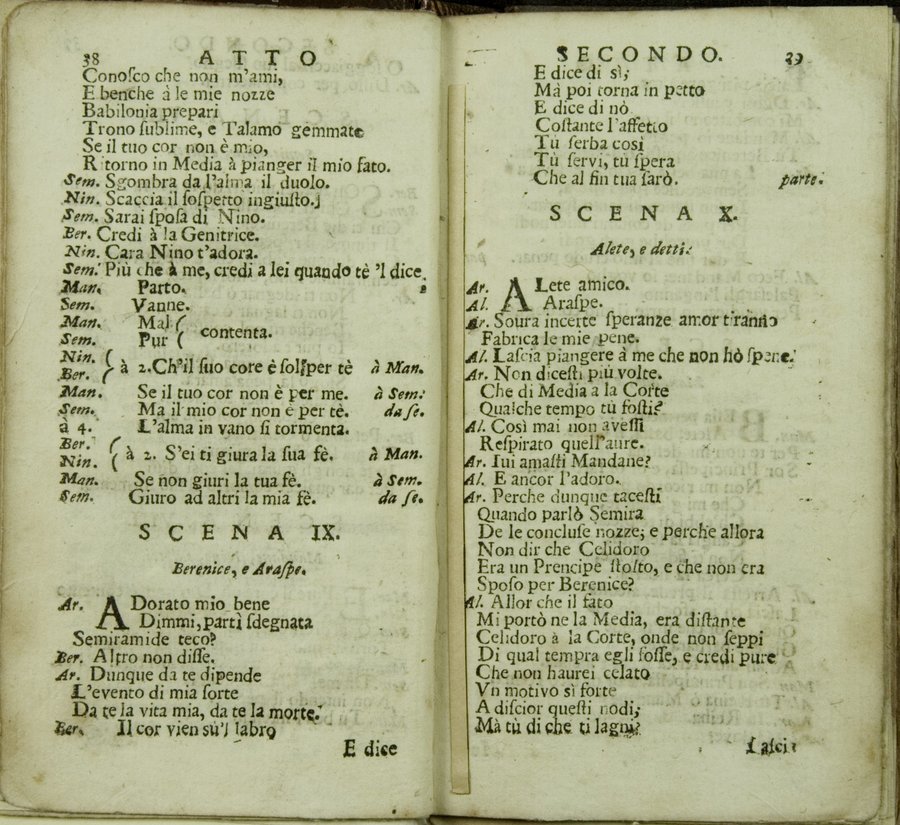 38 ATTO
Conoſco che non m'ami,
E benche à le mie nozze
Babilonia prepari
Trono ſublime, e Talamo gemmate
Se il tuo cor non è mio,
Ritorno in Media à pianger il mio fato.
Sem. Sgombra da l'alma il duolo.
Nin. Scaccia il ſoſpetto ingiuſto.
Sem. Sarai ſpoſa di Nino.
Ber. Credi à la Genitrice.
Nin. Cara Nino t'adora.
Sem. Più che à me, credi a lei quando tè 'l dice
Man. Parto.
Sem. Vanne.
Man. Mal (
contenta.
Sem. Pur (
Nin. (
Ber. ( à 2. Ch'il ſuo core è ſol per tè à Man.
Man. Se il tuo cor non è per me. à Sem.
Sem. Ma il mio cor non è per tè. da ſe.
à 4. L'alma in vano ſi tormenta.
Ber. (
Nin. ( à 2. S'ei ti giura la ſua fè. à Man.
Man. Se non giuri la tua fè. à Sem.
Sem. Giuro ad altri la mia fè. da ſe.
SCENA IX.
Berenice, e Araſpe.
Ar. ADorato mio bene
Dimmi, partì ſdegnata
Semiramide teco?
Ber. Altro non diſſe.
Ar. Dunque da te dipende
L'evento di mia ſorte
Da te la vita mia, da te la morte.
Ber. Il cor vien sù'l labro
E dice
SECONDO. 39
E dice di sì;
Mà poi torna in petto
E dice di nò
Coſtante l'affetto
Tù ſerba così
Tù ſervi, tù ſpera
Che al fin tua ſarò. parte.
SCENA X.
Alete, e detti.
Ar. ALete amico.
Al. Araſpe.
Ar. Soura incerte ſperanze amor tiranno
Fabrica le mie pene.
Al. Laſcia piangere à me che non hò ſpene.
Ar. Non diceſti più volte.
Che di Media a la Corte
Qualche tempo tù foſti?
Al. Così mai non aveſſi
Reſpirato quell'aure.
Ar. Iui amaſti Mandane?
Al. E ancor l'adoro.
Ar. Perche dunque taceſti
Quando parlò Semira
De le concluſe nozze; e perche allora
Non dir che Celidoro
Era un Prencipe ſtolto, e che non era
Spoſo per Berenice?
Al. Allor che il fato
Mi portò ne la Media, era diſtante
Celidoro à la Corte, onde non ſeppi
Di qual tempra egli foſſe, e credi pure
Che non haurei celato
Vn motivo sì forte
A diſcior queſti nodi;
Mà tù di che ti lagni?
Laſci